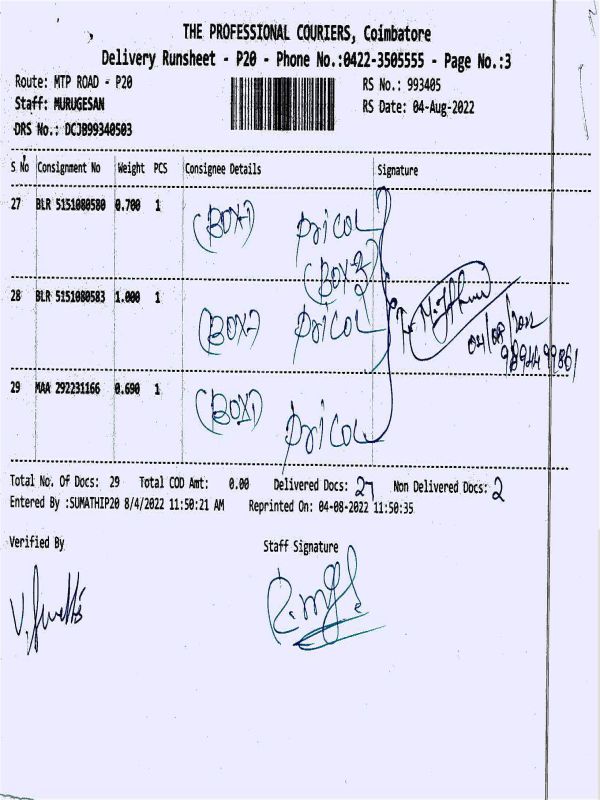 THE PROFESSIONAL COURIERS, Coimbatore
Delivery Runsheet - P20 - Phone No.:0422-3505555 - Page No.:3
Route: MTP ROAD - P20
RS No.: 993405
Staff: MURUGESAN
RS Date: 04-Aug-2022
DRS No.: DCJB99340503
S No Consignment No Weight PCS Consignee Details Signature
27 BLR 5151080580 0.700 1 (BOX) pricol
(BOX 3)
28 BLR 5151080583 1.000 1 (BOX) pricol
04/08/2022
29 MAA 292231166 0.690 1 (BOX) pricol
Total No. Of Docs: 29 Total COD Amt: 0.00 Delivered Docs: 27 Non Delivered Docs: 2
Entered By :SUMATHIP20 8/4/2022 11:50:21 AM Reprinted On: 04-08-2022 11:50:35
Verified By Staff Signature